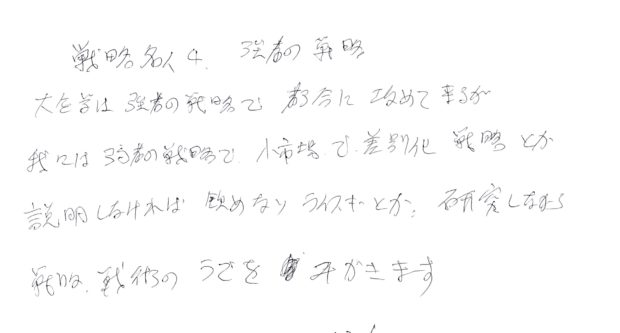 戦略名人4. 強者の戦略
大企業は強者の戦略で 都会に攻めて来るが
我には弱者の戦略で、小市場で、差別化 戦略とか
説明しなければ 飲めない ライスキーとか、研究しながら
戦略、戦術の うでを みがきます